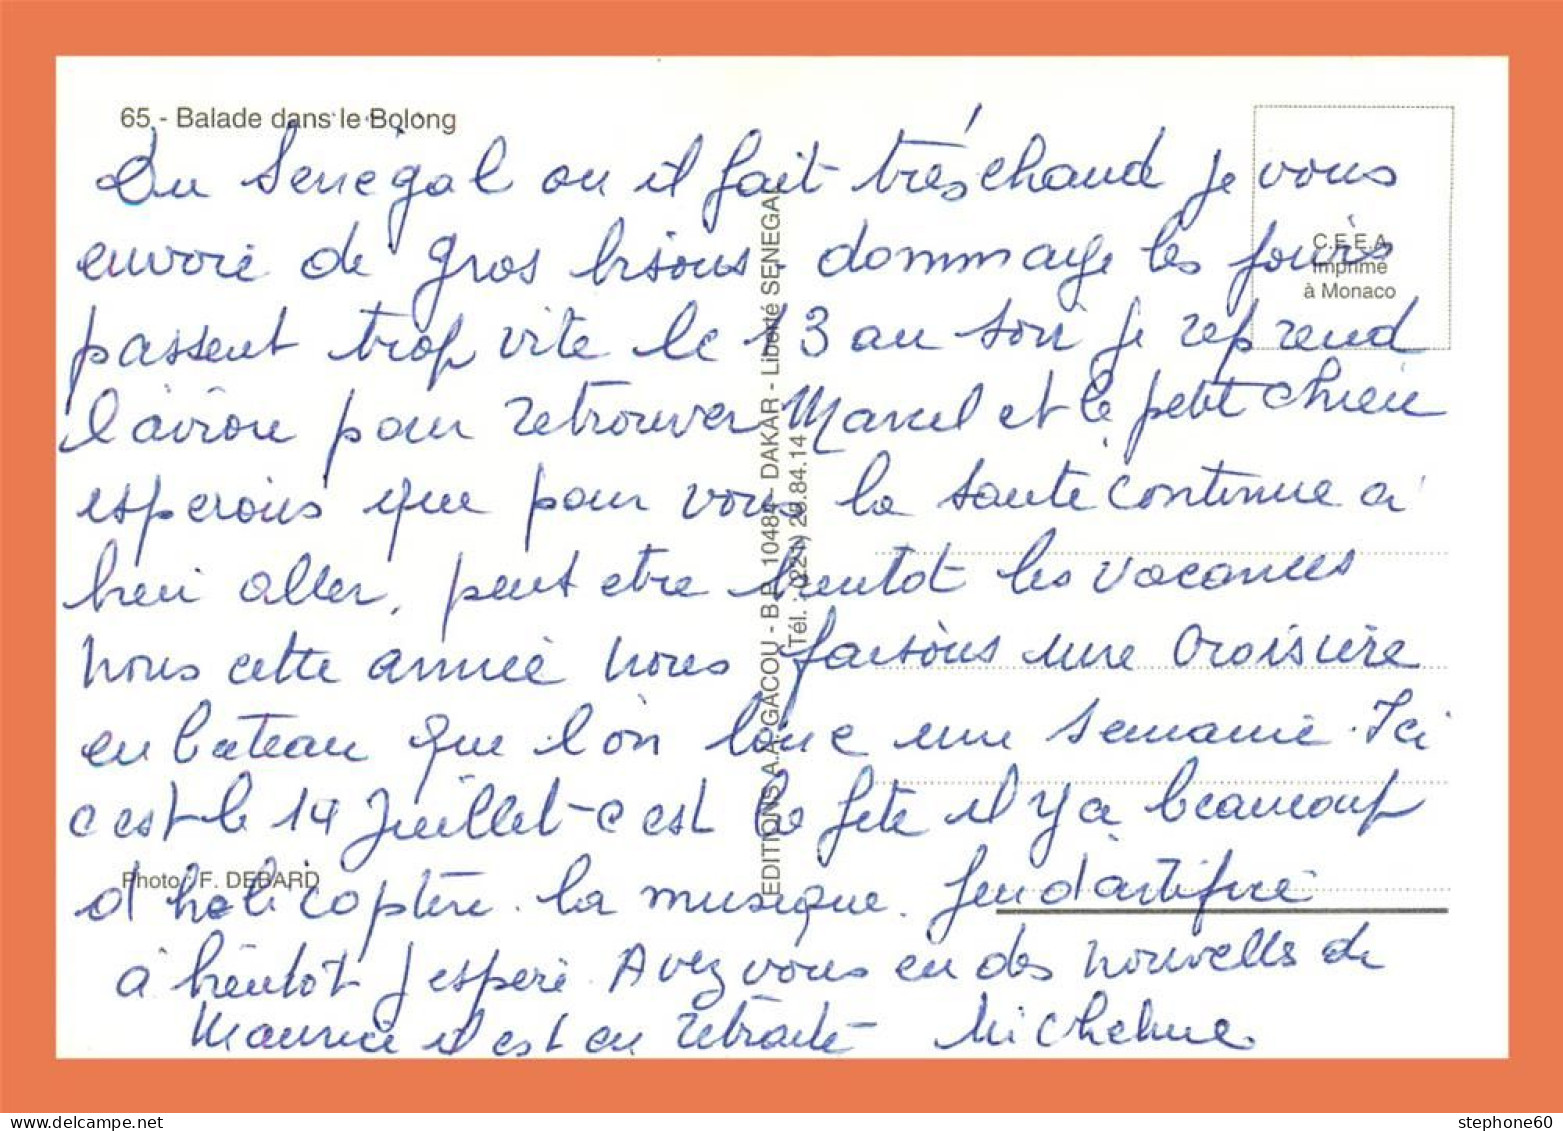 65 - Balade dans le Bolong
Du Senégal ou il fait trés chaud je vous
envoie de gros bisous. dommage les jours
passent trop vite le 13 au soir je reprend
l'avion pour retrouver Marcel et le petit chien
esperons que pour vous la santé continue a
bien aller, peut etre bientot les vacances
nous cette année nous faisons une croisière
en bateau que l'on loue une semaine. Ici
c'est le 14 Juillet - c'est la fete il y a beaucoup
d'helicoptère. la musique. feu d'artifice
à bientot j'espère. Avez vous eu des nouvelles de
Maurice il est en retraite - Micheline
C.E.E.A.
Imprimé
à Monaco
EDITIONS A.A. GACOU - B.P. 10484 - DAKAR - Liberté SENEGAL
(Tél. : (221) 20.84.14
Photo : F. DEBARD
stephone60